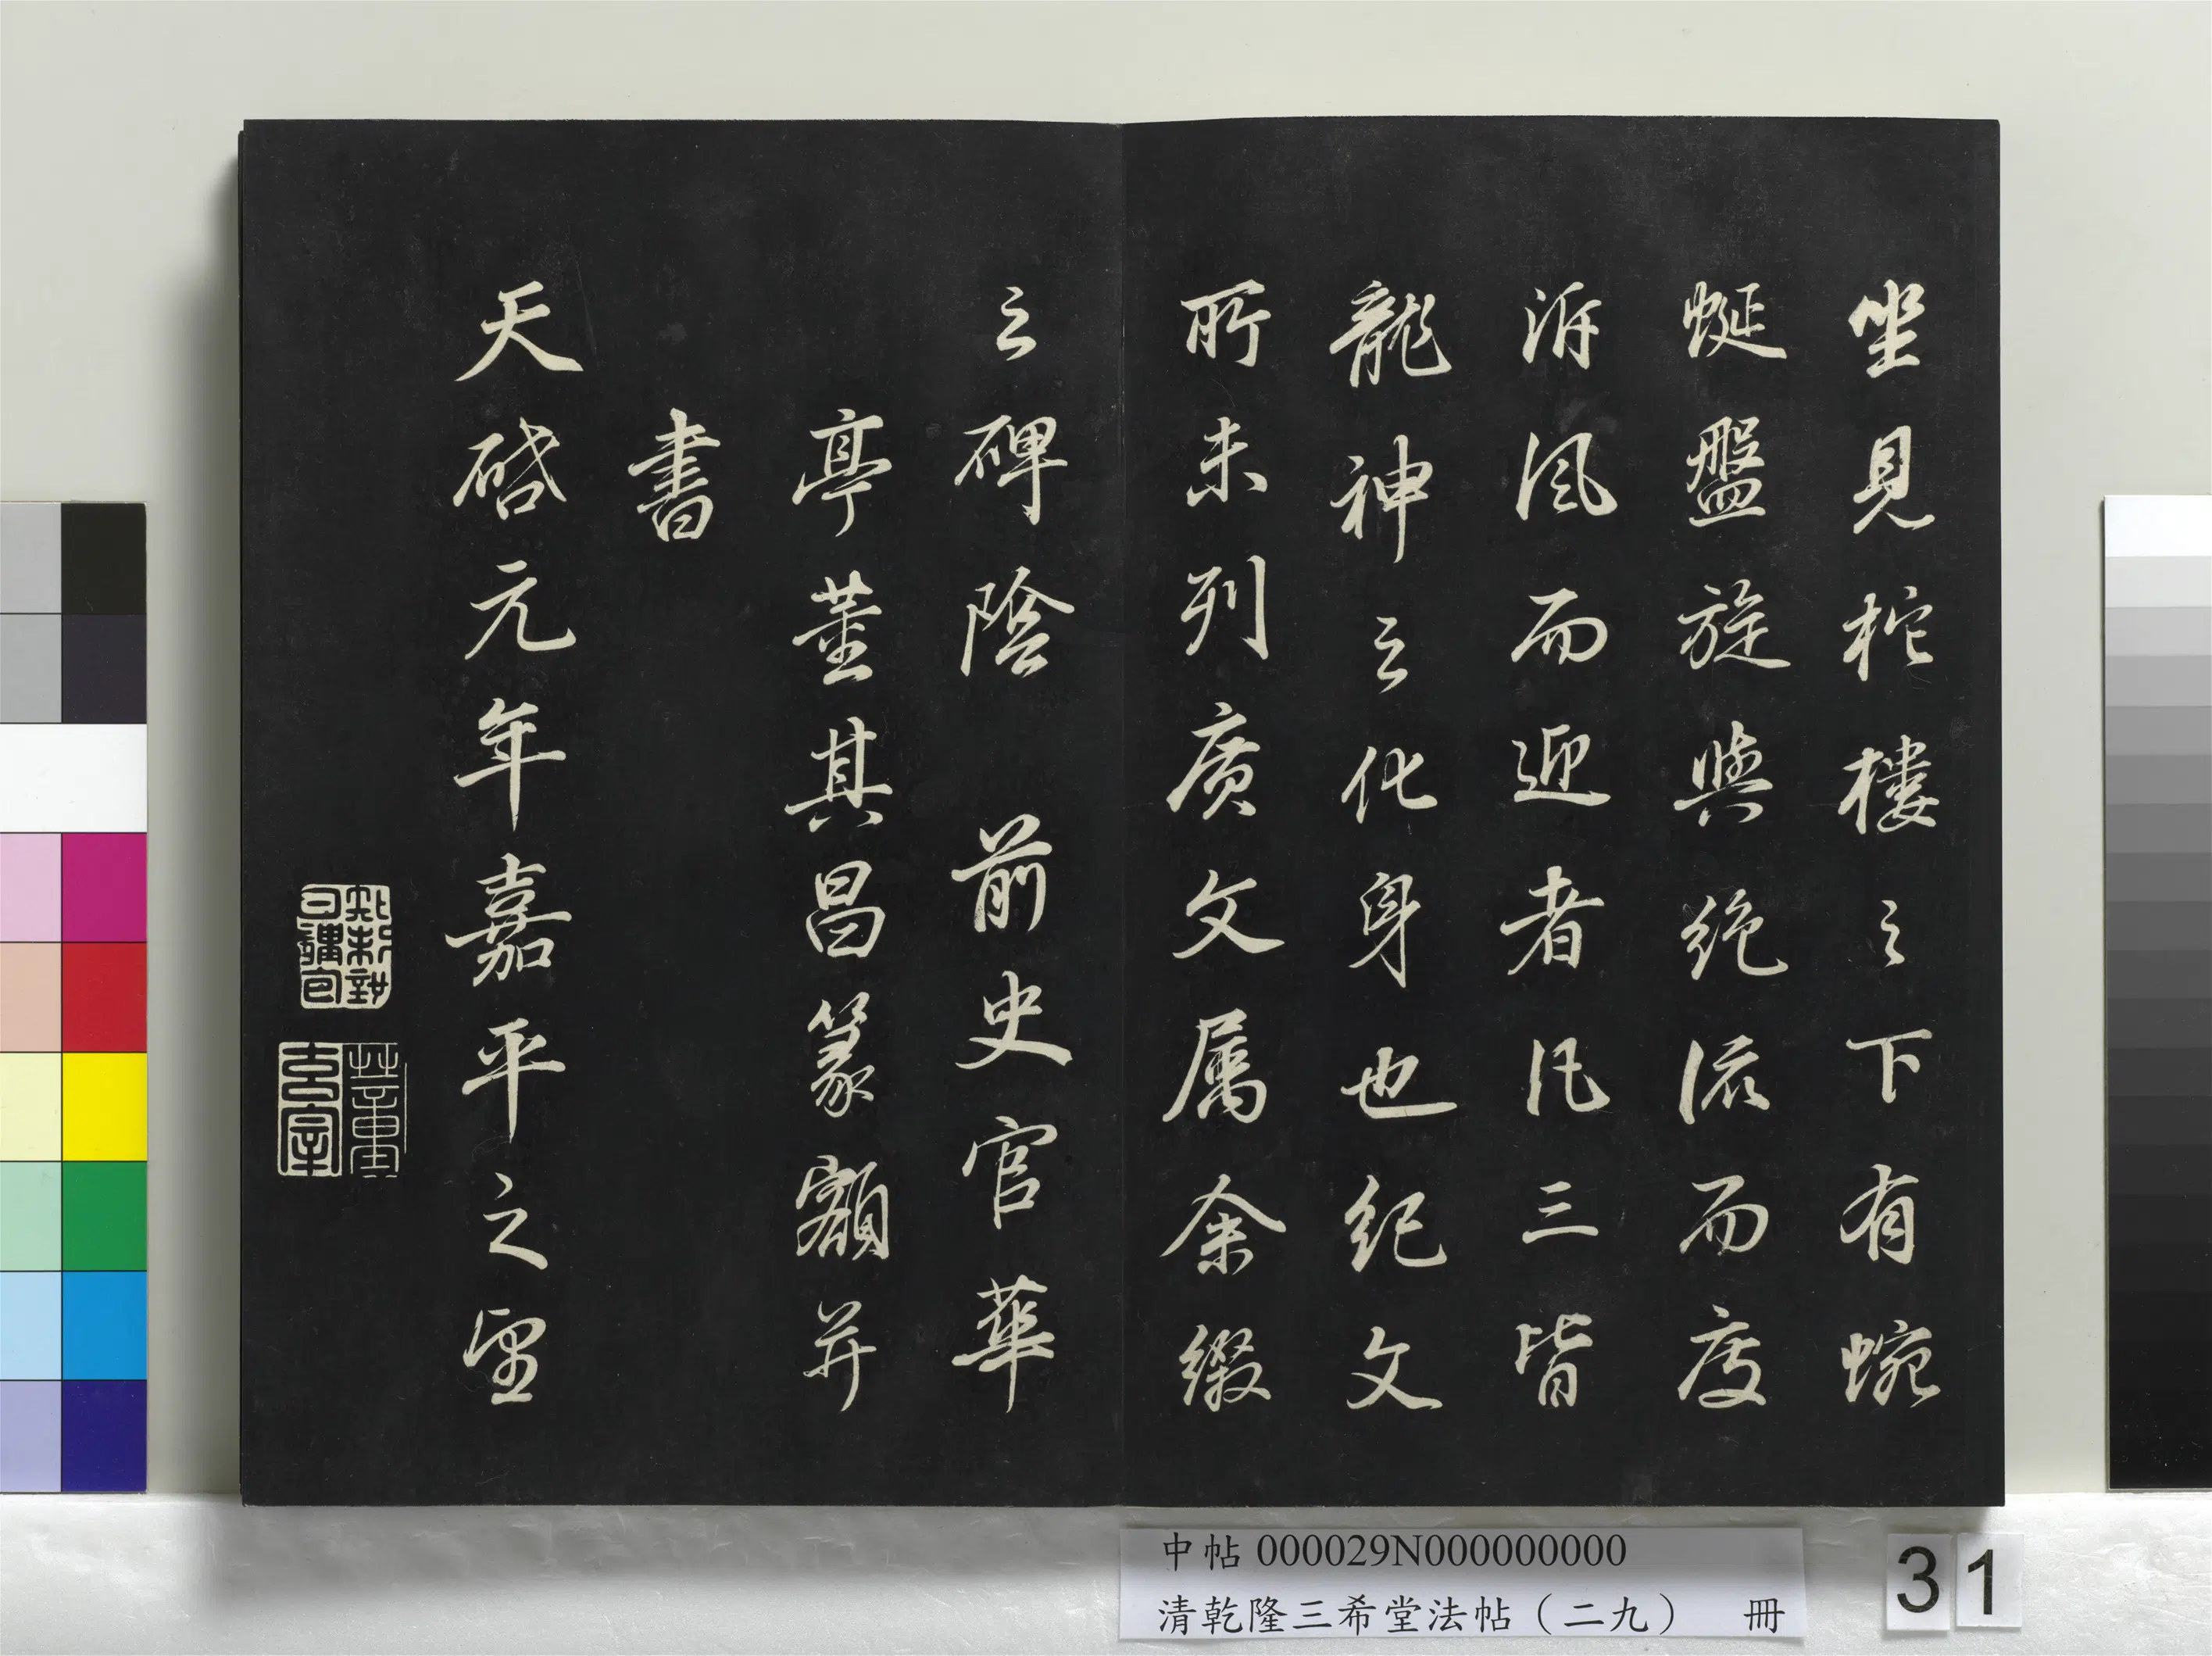 坐見柁樓之下有蜿
蜒盤旋與絕流而度
泝風而迎者凡三皆
龍神之化身也紀文
所未列廣文属余綴
之碑陰 前史官華
亭董其昌篆額并
書
天啓元年嘉平之望
中帖 000029N000000000
清乾隆三希堂法帖(二九) 冊
31